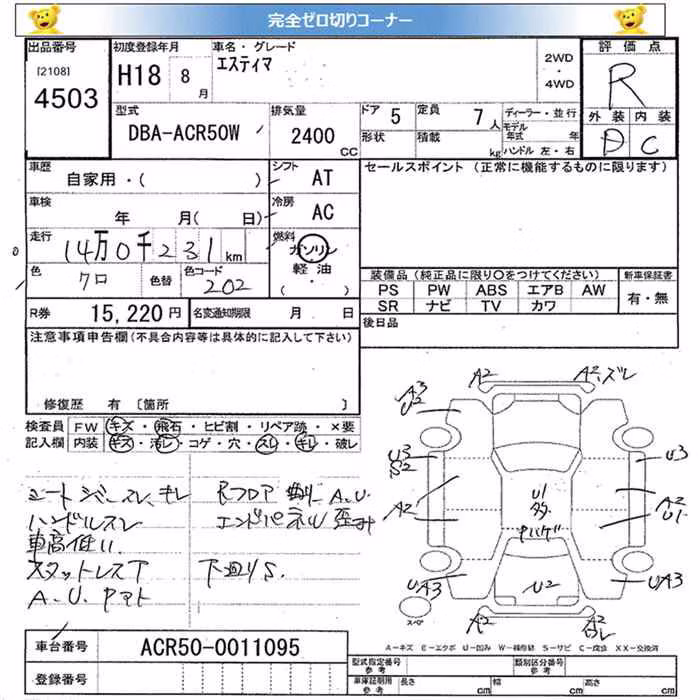 完全ゼロ切りコーナー
出品番号 初度登録年月 車名・グレード 評価点
[2108] 4503 H18 8月 エスティマ 2WD・4WD R
型式 排気量 ドア 5 定員 7人 ディーラー・並行 外装 内装
DBA-ACR50W 2400CC 形状 積載 kg モデル年式 年 D C
ハンドル 左・右
車歴 自家用・( ) シフト AT セールスポイント (正常に機能するものに限ります)
車検 年 月( 日) 冷房 AC
走行 14万0千231km 燃料 ガソリン 軽油 (・)
色 クロ 色替 色コード 202 装備品(純正品に限り〇をつけてください) 新車保証書
PS PW ABS エアB AW 有・無
SR ナビ TV カワ
R券 15,220円 名変通知期限 月 日 後日品
注意事項申告欄(不具合内容等は具体的に記入して下さい)
修復歴 有 〔箇所 〕
検査員 FW キズ・飛石・ヒビ割・リペア跡・×要
記入欄 内装 キズ・汚レ・コゲ・穴・スレ・キレ・破レ
シートジミ、スレ、キレ
ハンドルスレ
車高低い.
スタットレス下
A.U. ヤマト
Rフロア A.U.
エンドパネル歪み
下廻りS.
A2 A2、ズレ
A3 U2
U3 S2 U3
A2 U1 多 A2 U1
Pハゲ
UA3 U2 UA3
スペア A2 A2 ズレ
A-キズ E-エクボ U-凹み W-補修跡 S-サビ C-腐食 XX-交換済
車台番号 ACR50-0011095
登録番号
型式指定番号 参考 類別区分番号 参考
車庫証明用 参考 長さ cm 幅 cm 高さ cm